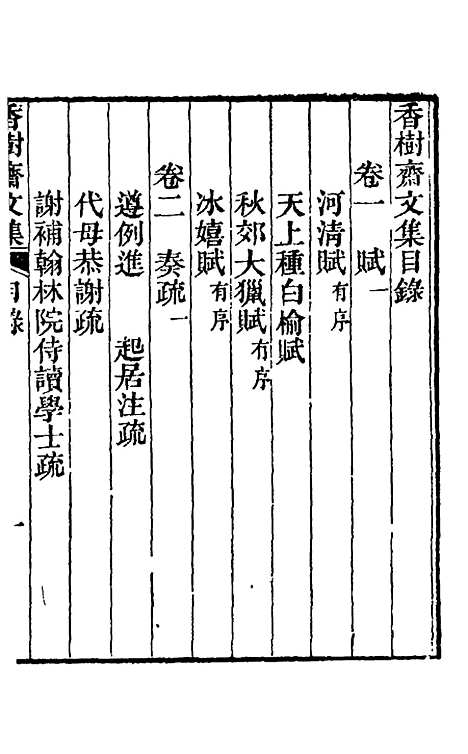 香樹齋文集目錄
卷一　賦一
河清賦有序
天上種白榆賦
秋郊大獵賦有序
冰嬉賦有序
卷二　奏疏一
遵例進　起居注疏
代母恭謝疏
謝補翰林院侍讀學士疏
香樹齋文集　目錄　一